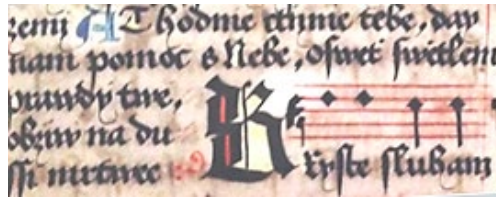 zemi AThodnie ctimie tebe, day
nam pomoc s Nebe, oswet swetlem
prawdy twe,
obziw na du
ssi mrtwee
Kryste sluham